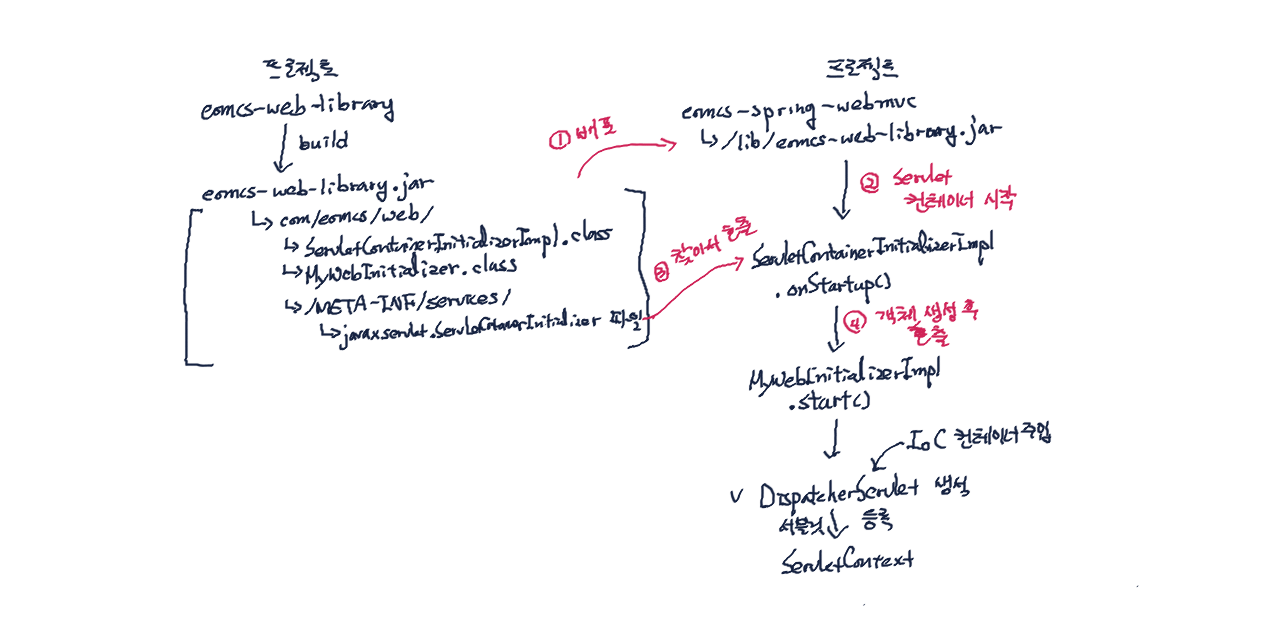 프로젝트
eomcs-web-library
build
eomcs-web-library.jar
↳ com/eomcs/web/
↳ ServletContainerInitializerImpl.class
↳ MyWebInitializer.class
↳ /META-INF/services/
↳ javax.servlet.ServletContainerInitializer 파일
① 배포
③ 찾아서 호출
프로젝트
eomcs-spring-webmvc
↳ /lib/eomcs-web-library.jar
② Servlet
컨테이너 시작
ServletContainerInitializerImpl
.onStartup()
④ 객체 생성 후
호출
MyWebInitializerImpl
.start()
IoC 컨테이너 주입
v DispatcherServlet 생성
서블릿 등록
ServletContext